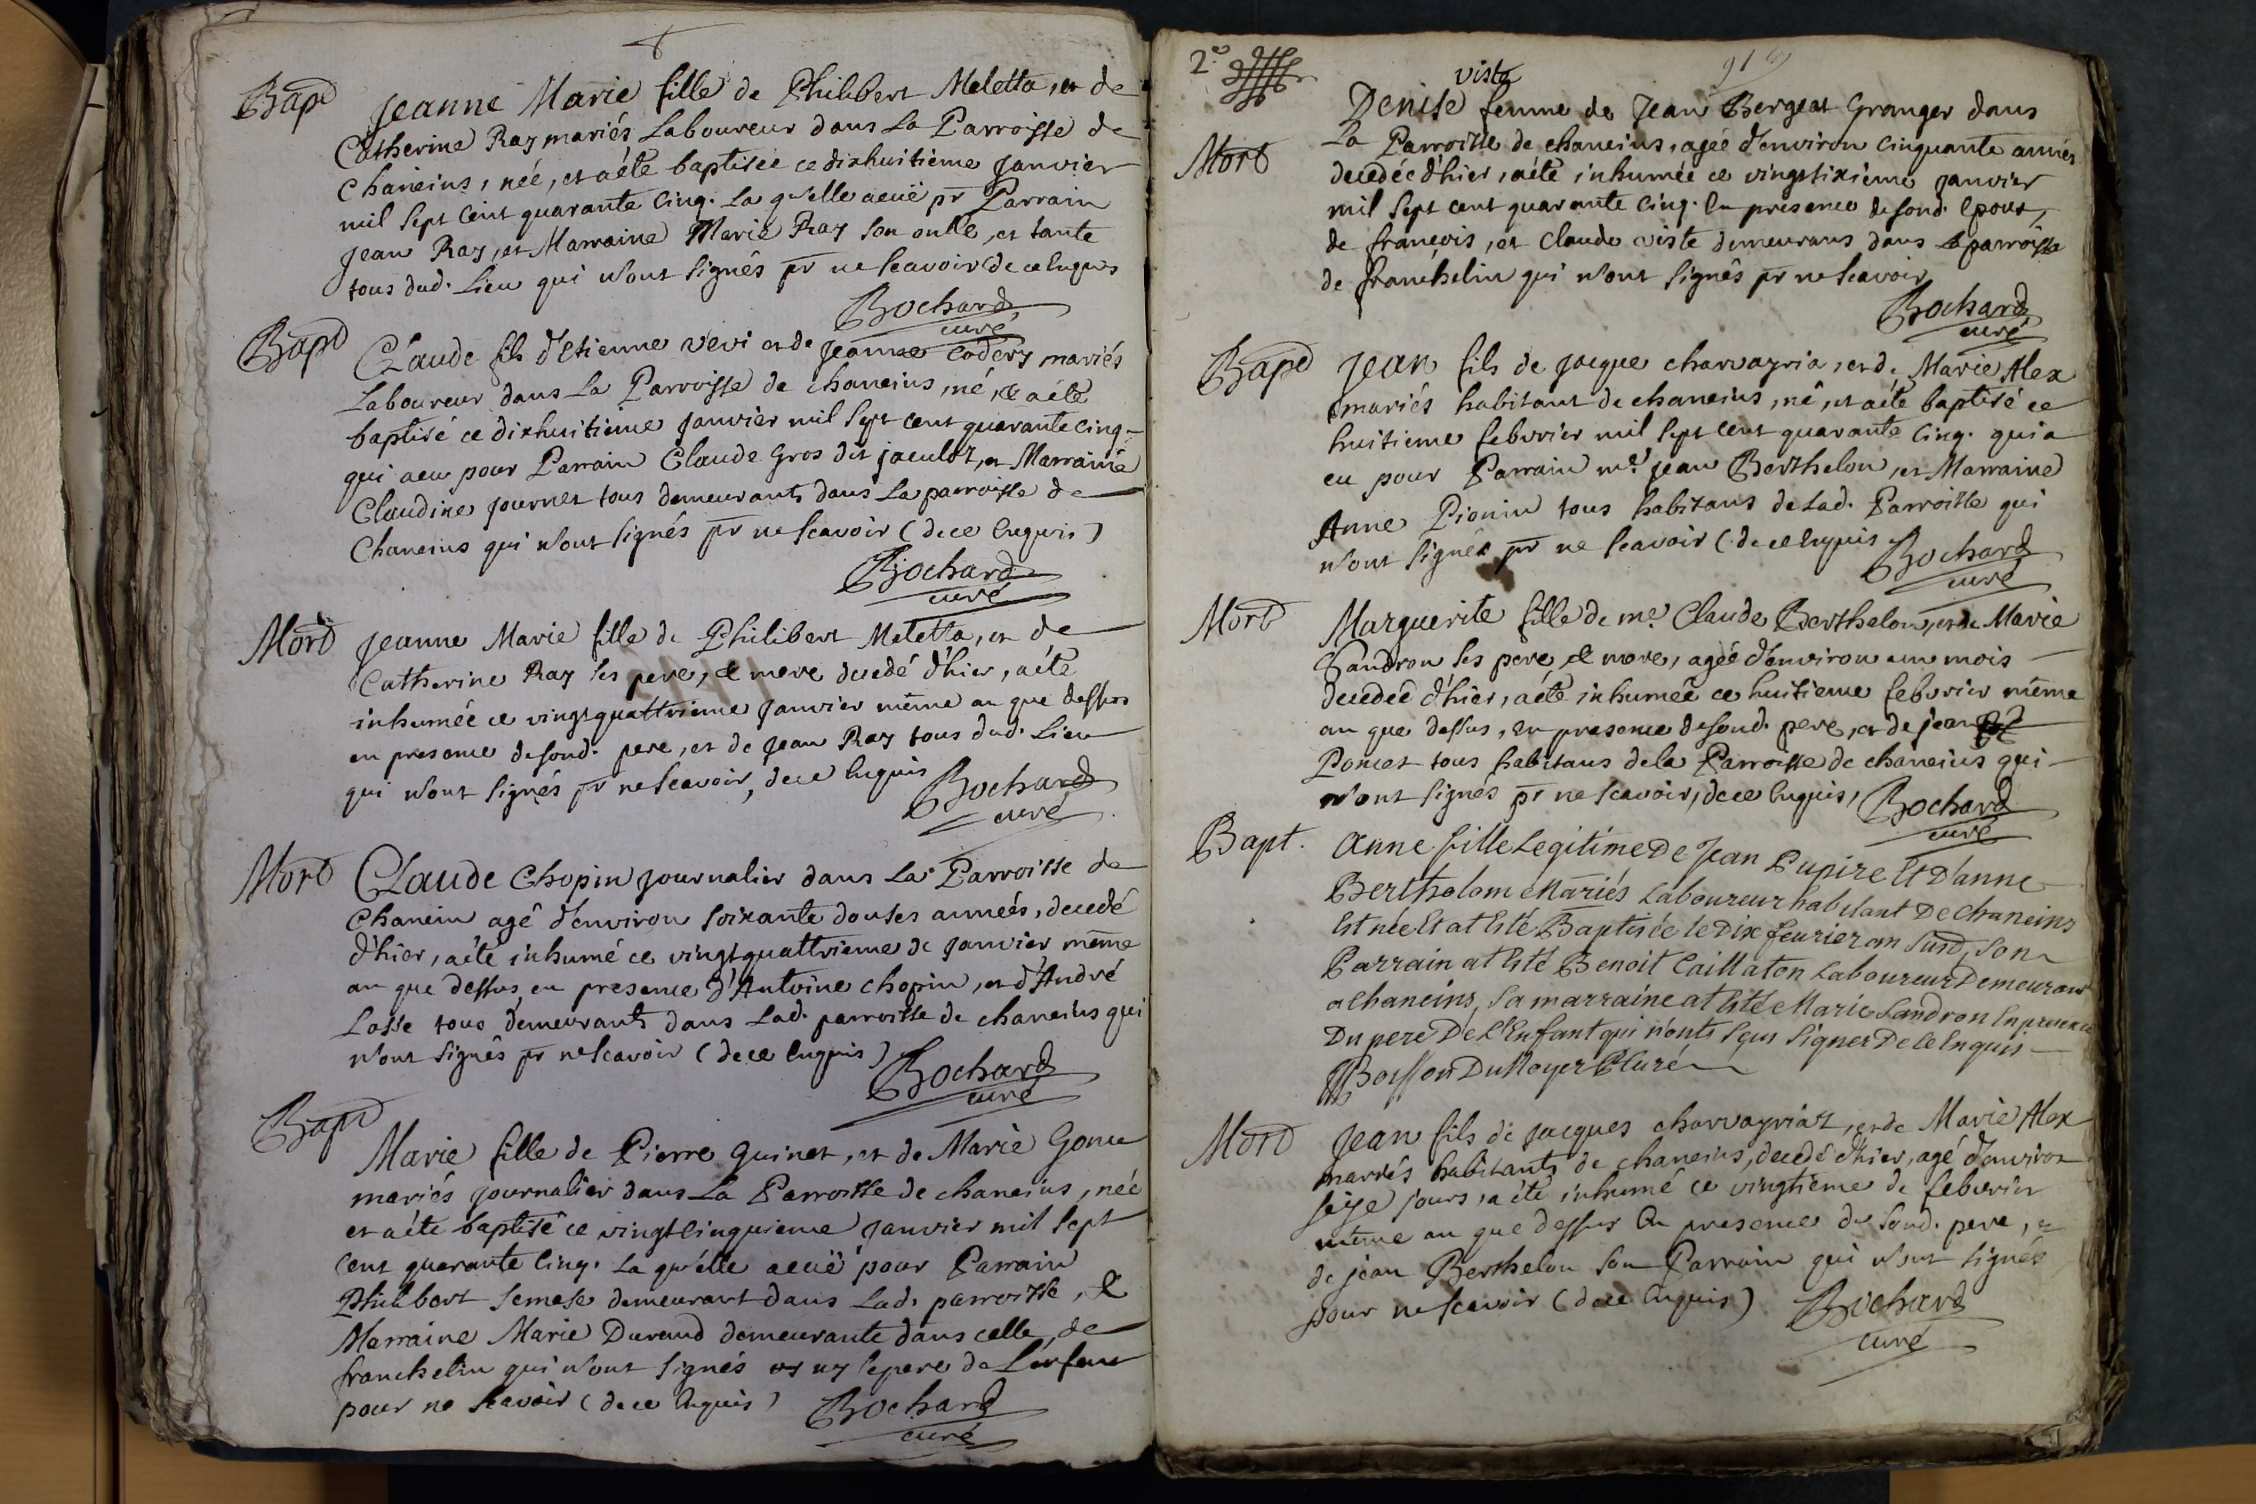 Bapt
Jeanne Marie fille de Philibert Meletta, et de
Catherine Ray mariés Laboureur dans La Parroisse de
Chaneins, née, et a été baptisée ce dixhuitieme janvier
mil sept cent quarante cinq. La qu'elle a euë pr Parrain
Jean Ray, et Marraine Marie Ray son oncle, et tante
tous dud. Lieu qui n'ont signés pr ne scavoir de ce enquis
Bochard
curé
Bapt
Claude fils d'Etienne Vevi et de Jeanne Codery mariés
Laboureur dans La Parroisse de chaneins, né, & a été
baptisé ce dixhuitieme janvier mil sept cent quarante cinq
qui a eu pour Parrain Claude Gros dit jaculot, et Marraine
Claudine journet tous demeurants dans La parroisse de
Chaneins qui n'ont signés pr ne scavoir (de ce enquis)
Bochard
curé
Mort
Jeanne Marie fille de Philibert Meletta, et de
Catherine Ray ses pere, & mere decedé d'hier, a été
inhumée ce vingtquattrieme janvier même an que dessus
en presence de sond. pere, et de Jean Ray tous dud. Lieu
qui n'ont signés pr ne scavoir, de ce enquis
Bochard
curé
Mort
Claude Chopin journalier dans La Parroisse de
Chanein agé d'environ soixante douses années, decedé
d'hier, a été inhumé ce vingtquattrieme de janvier même
an que dessus en presence d'Antoine Chopin, et d'André
Losse tous demeurants dans Lad. parroisse de chaneins qui
n'ont signés pr ne scavoir (de ce enquis)
Bochard
curé
Bapt
Marie fille de Pierre Guinet, et de Marie Gonu
mariés journalier dans La Parroisse de chaneins, née
et a été baptisé ce vingtcinquieme janvier mil sept
cent quarante cinq. La qu'elle a euë pour Parrain
Philibert Semese demeurant dans Lad. parroisse, &
Marraine Marie Durand demeurante dans celle de
franchelin qui n'ont signés ny le pere de L'enfant
pour ne scavoir (de ce enquis)
Bochard
curé
2e
vista
Mort
Denise femme de Jean Bergeat Granger dans
La Parroisse de chaneins, agée d'environ cinquante années
decedée d'hier, a été inhumée ce vingtsixieme janvier
mil sept cent quarante cinq. En presence de sond. Epoux,
de françois, et Claude viste demeurans dans la parroisse
de franchelin qui n'ont signés pr ne scavoir
Bochard
curé
Bapt
Jean fils de jacque charvayria, et de Marie Alex
mariés habitant de chaneins, né, et a été baptisé ce
huitieme febvrier mil sept cent quarante cinq. qui a
eu pour Parrain me. jean Berthelon, et Marraine
Anne Pionin tous habitans de Lad. Parroisse qui
n'ont signés pr ne scavoir (de ce enquis
Bochard
curé
Mort
Marguerite fille de me. Claude Berthelon, et de Marie
Sandron ses pere & mere, agée d'environ un mois
decedée d'hier, a été inhumée ce huitieme febvrier même
an que dessus, en presence de sond. pere, et de jean
Poncet tous habitans de la Parroisse de chaneins qui
n'ont signés pr ne scavoir, de ce enquis,
Bochard
curé
Bapt.
Anne fille Legitime De Jean Pupire Et D'anne
Bertholom Mariés Laboureur habitant De Chaneins
Est née Et at Eté Baptisée le Dix feurier an susd, son
Parrain at Eté Benoit Caillaton Laboureur Demeurant
a Chaneins, sa marraine at Eté Marie Sandron En presence
Du pere De L'Enfant qui n'onts sçus signer De Ce Enquis
Boisson DuNoyer Curé
Mort
Jean fils de jacques charvayriat, et de Marie Alex
mariés habitants de chaneins, decedé d'hier, agé d'environ
seize jours, a été inhumé ce vingtieme de febvrier
même an que dessus En presence de sond. pere, &
de jean Berthelon son Parrain qui n'ont signés
pour ne scavoir (de ce enquis)
Bochard
curé